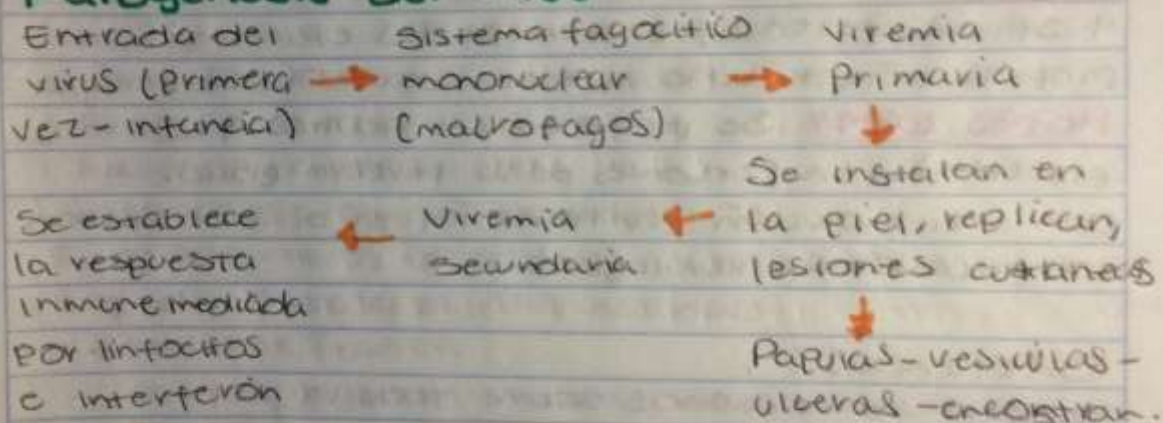 Entrada del
virus (primera
vez - infancia)
→
sistema fagocitico
mononuclear
(macrofagos)
→
Viremia
Primaria
↓
Se instalan en
la piel, replican,
lesiones cutaneas
↓
Papulas - vesiculas -
ulceras - encostran.
←
Viremia
secundaria
←
Se establece
la respuesta
inmune mediada
por linfocitos
e interferón